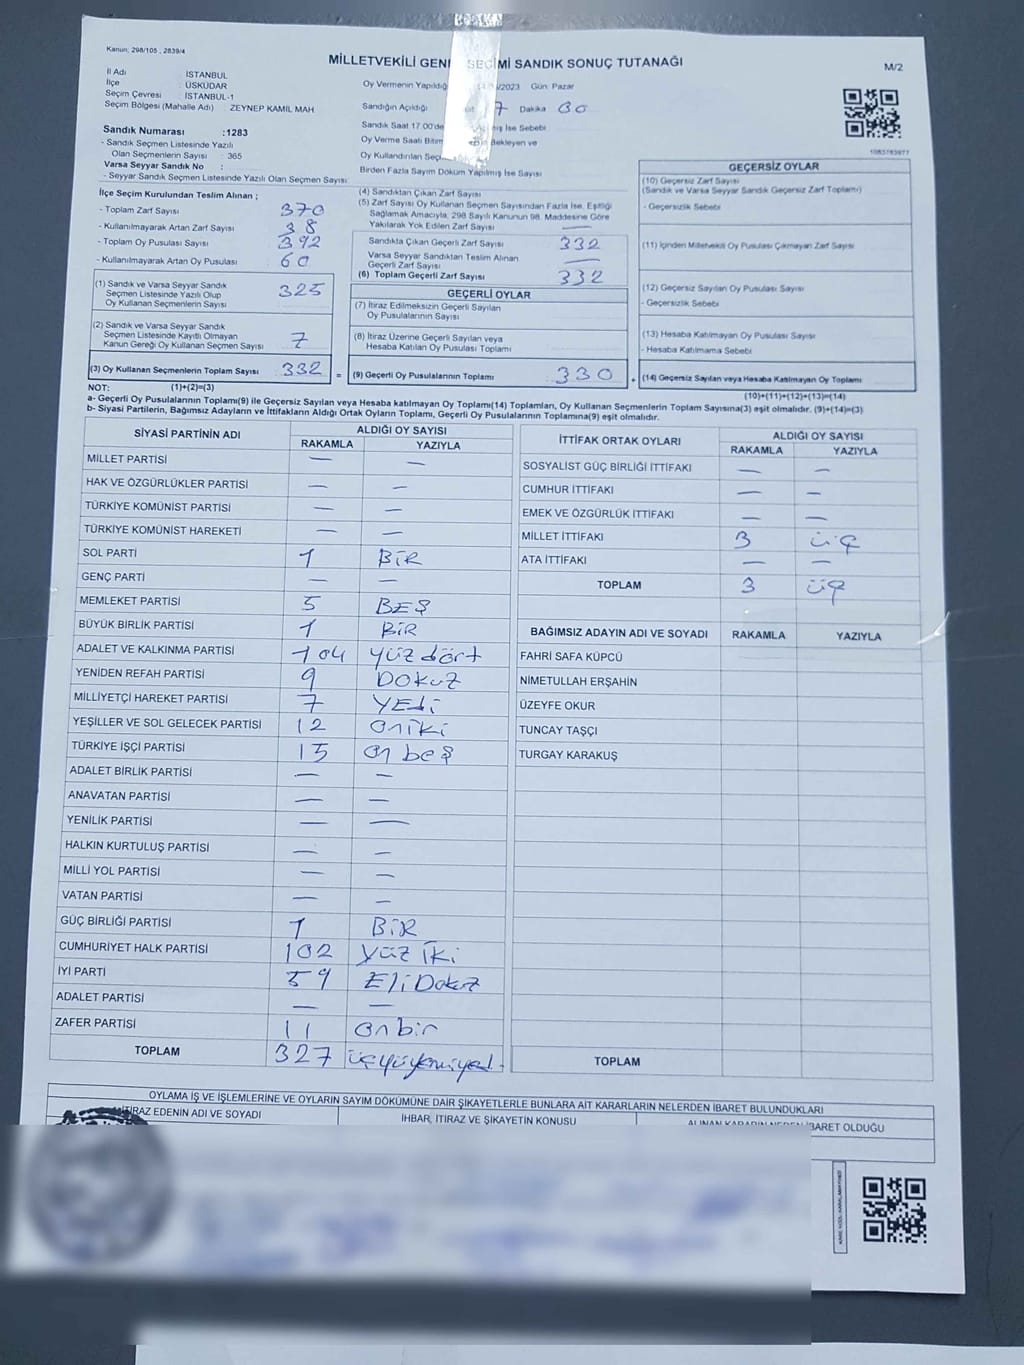 Kanun: 298/105 , 2839/4
MİLLETVEKİLİ GENEL SEÇİMİ SANDIK SONUÇ TUTANAĞI
M/2
İl Adı : İSTANBUL
İlçe : ÜSKÜDAR
Seçim Çevresi : İSTANBUL-1
Seçim Bölgesi (Mahalle Adı) ZEYNEP KAMİL MAH
Oy Vermenin Yapıldığı 2023 Gün: Pazar
Sandığın Açıldığı 7 Dakika 30
Sandık Saat 17:00'de İse Sebebi
Oy Verme Saati Bekleyen ve
Oy Kullandırılan
Birden Fazla Sayım Döküm Yapılmış İse Sayısı
Sandık Numarası :1283
- Sandık Seçmen Listesinde Yazılı
Olan Seçmenlerin Sayısı : 365
Varsa Seyyar Sandık No :
- Seyyar Sandık Seçmen Listesinde Yazılı Olan Seçmen Sayısı
İlçe Seçim Kurulundan Teslim Alınan ;
- Toplam Zarf Sayısı 370
- Kullanılmayarak Artan Zarf Sayısı 38
- Toplam Oy Pusulası Sayısı 392
- Kullanılmayarak Artan Oy Pusulası 60
(1) Sandık ve Varsa Seyyar Sandık
Seçmen Listesinde Yazılı Olup
Oy Kullanan Seçmenlerin Sayısı 325
(2) Sandık ve Varsa Seyyar Sandık
Seçmen Listesinde Kayıtlı Olmayan
Kanun Gereği Oy Kullanan Seçmen Sayısı 7
(3) Oy Kullanan Seçmenlerin Toplam Sayısı 332 =
(4) Sandıktan Çıkan Zarf Sayısı
(5) Zarf Sayısı Oy Kullanan Seçmen Sayısından Fazla İse, Eşitliği
Sağlamak Amacıyla, 298 Sayılı Kanunun 98. Maddesine Göre
Yakılarak Yok Edilen Zarf Sayısı —
Sandıkta Çıkan Geçerli Zarf Sayısı 332
Varsa Seyyar Sandıktan Teslim Alınan
Geçerli Zarf Sayısı —
(6) Toplam Geçerli Zarf Sayısı 332
GEÇERLİ OYLAR
(7) İtiraz Edilmeksizin Geçerli Sayılan
Oy Pusulalarının Sayısı
(8) İtiraz Üzerine Geçerli Sayılan veya
Hesaba Katılan Oy Pusulası Toplamı
(9) Geçerli Oy Pusulalarının Toplamı 330 +
GEÇERSİZ OYLAR
(10) Geçersiz Zarf Sayısı
(Sandık ve Varsa Seyyar Sandık Geçersiz Zarf Toplamı)
- Geçersizlik Sebebi
(11) İçinden Milletvekili Oy Pusulası Çıkmayan Zarf Sayısı
(12) Geçersiz Sayılan Oy Pusulası Sayısı
- Geçersizlik Sebebi
(13) Hesaba Katılmayan Oy Pusulası Sayısı
- Hesaba Katılmama Sebebi
(14) Geçersiz Sayılan veya Hesaba Katılmayan Oy Toplamı
NOT: (1)+(2)=(3)
(10)+(11)+(12)+(13)=(14)
a- Geçerli Oy Pusulasının Toplamı(9) ile Geçersiz Sayılan veya Hesaba katılmayan Oy Toplamı(14) Toplamları, Oy Kullanan Seçmenlerin Toplam Sayısına(3) eşit olmalıdır. (9)+(14)=(3)
b- Siyasi Partilerin, Bağımsız Adayların ve İttifakların Aldığı Ortak Oyların Toplamı, Geçerli Oy Pusulalarının Toplamına(9) eşit olmalıdır.
SİYASİ PARTİNİN ADI ALDIĞI OY SAYISI
RAKAMLA YAZIYLA
MİLLET PARTİSİ — —
HAK VE ÖZGÜRLÜKLER PARTİSİ — —
TÜRKİYE KOMÜNİST PARTİSİ — —
TÜRKİYE KOMÜNİST HAREKETİ — —
SOL PARTİ 1 BİR
GENÇ PARTİ — —
MEMLEKET PARTİSİ 5 BEŞ
BÜYÜK BİRLİK PARTİSİ 1 BİR
ADALET VE KALKINMA PARTİSİ 104 yüz dört
YENİDEN REFAH PARTİSİ 9 DOKUZ
MİLLİYETÇİ HAREKET PARTİSİ 7 YEDİ
YEŞİLLER VE SOL GELECEK PARTİSİ 12 oniki
TÜRKİYE İŞÇİ PARTİSİ 15 on beş
ADALET BİRLİK PARTİSİ — —
ANAVATAN PARTİSİ — —
YENİLİK PARTİSİ — —
HALKIN KURTULUŞ PARTİSİ — —
MİLLİ YOL PARTİSİ — —
VATAN PARTİSİ — —
GÜÇ BİRLİĞİ PARTİSİ 1 BİR
CUMHURİYET HALK PARTİSİ 102 yüz iki
İYİ PARTİ 59 Elli Dokuz
ADALET PARTİSİ — —
ZAFER PARTİSİ 11 onbir
TOPLAM 327 üçyüyirmiyedi
İTTİFAK ORTAK OYLARI ALDIĞI OY SAYISI
RAKAMLA YAZIYLA
SOSYALİST GÜÇ BİRLİĞİ İTTİFAKI — —
CUMHUR İTTİFAKI — —
EMEK VE ÖZGÜRLÜK İTTİFAKI — —
MİLLET İTTİFAKI 3 üç
ATA İTTİFAKI — —
TOPLAM 3 üç
BAĞIMSIZ ADAYIN ADI VE SOYADI RAKAMLA YAZIYLA
FAHRİ SAFA KÜPCÜ
NİMETULLAH ERŞAHİN
ÜZEYFE OKUR
TUNCAY TAŞÇI
TURGAY KARAKUŞ
TOPLAM
OYLAMA İŞ VE İŞLEMLERİNE VE OYLARIN SAYIM DÖKÜMÜNE DAİR ŞİKAYETLERLE BUNLARA AİT KARARLARIN NELERDEN İBARET BULUNDUKLARI
İTİRAZ EDENİN ADI VE SOYADI
İHBAR, İTİRAZ VE ŞİKAYETİN KONUSU
ALINAN KARARIN NEDEN İBARET OLDUĞU